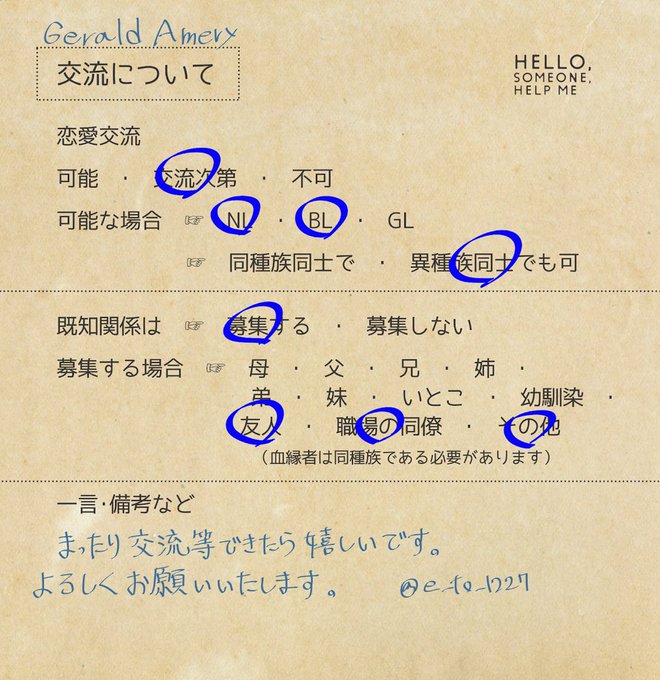 Gerald Amery
交流について
HELLO,
SOMEONE,
HELP ME
恋愛交流
可能 ・ 交流次第 ・ 不可
可能な場合 ☞ NL ・ BL ・ GL
☞ 同種族同士で ・ 異種族同士でも可
既知関係は ☞ 募集する ・ 募集しない
募集する場合 ☞ 母 ・ 父 ・ 兄 ・ 姉 ・
弟 ・ 妹 ・ いとこ ・ 幼馴染 ・
友人 ・ 職場の同僚 ・ その他
（血縁者は同種族である必要があります）
一言・備考など
まったり交流等できたら嬉しいです。
よろしくお願いいたします。 @e_to_1227